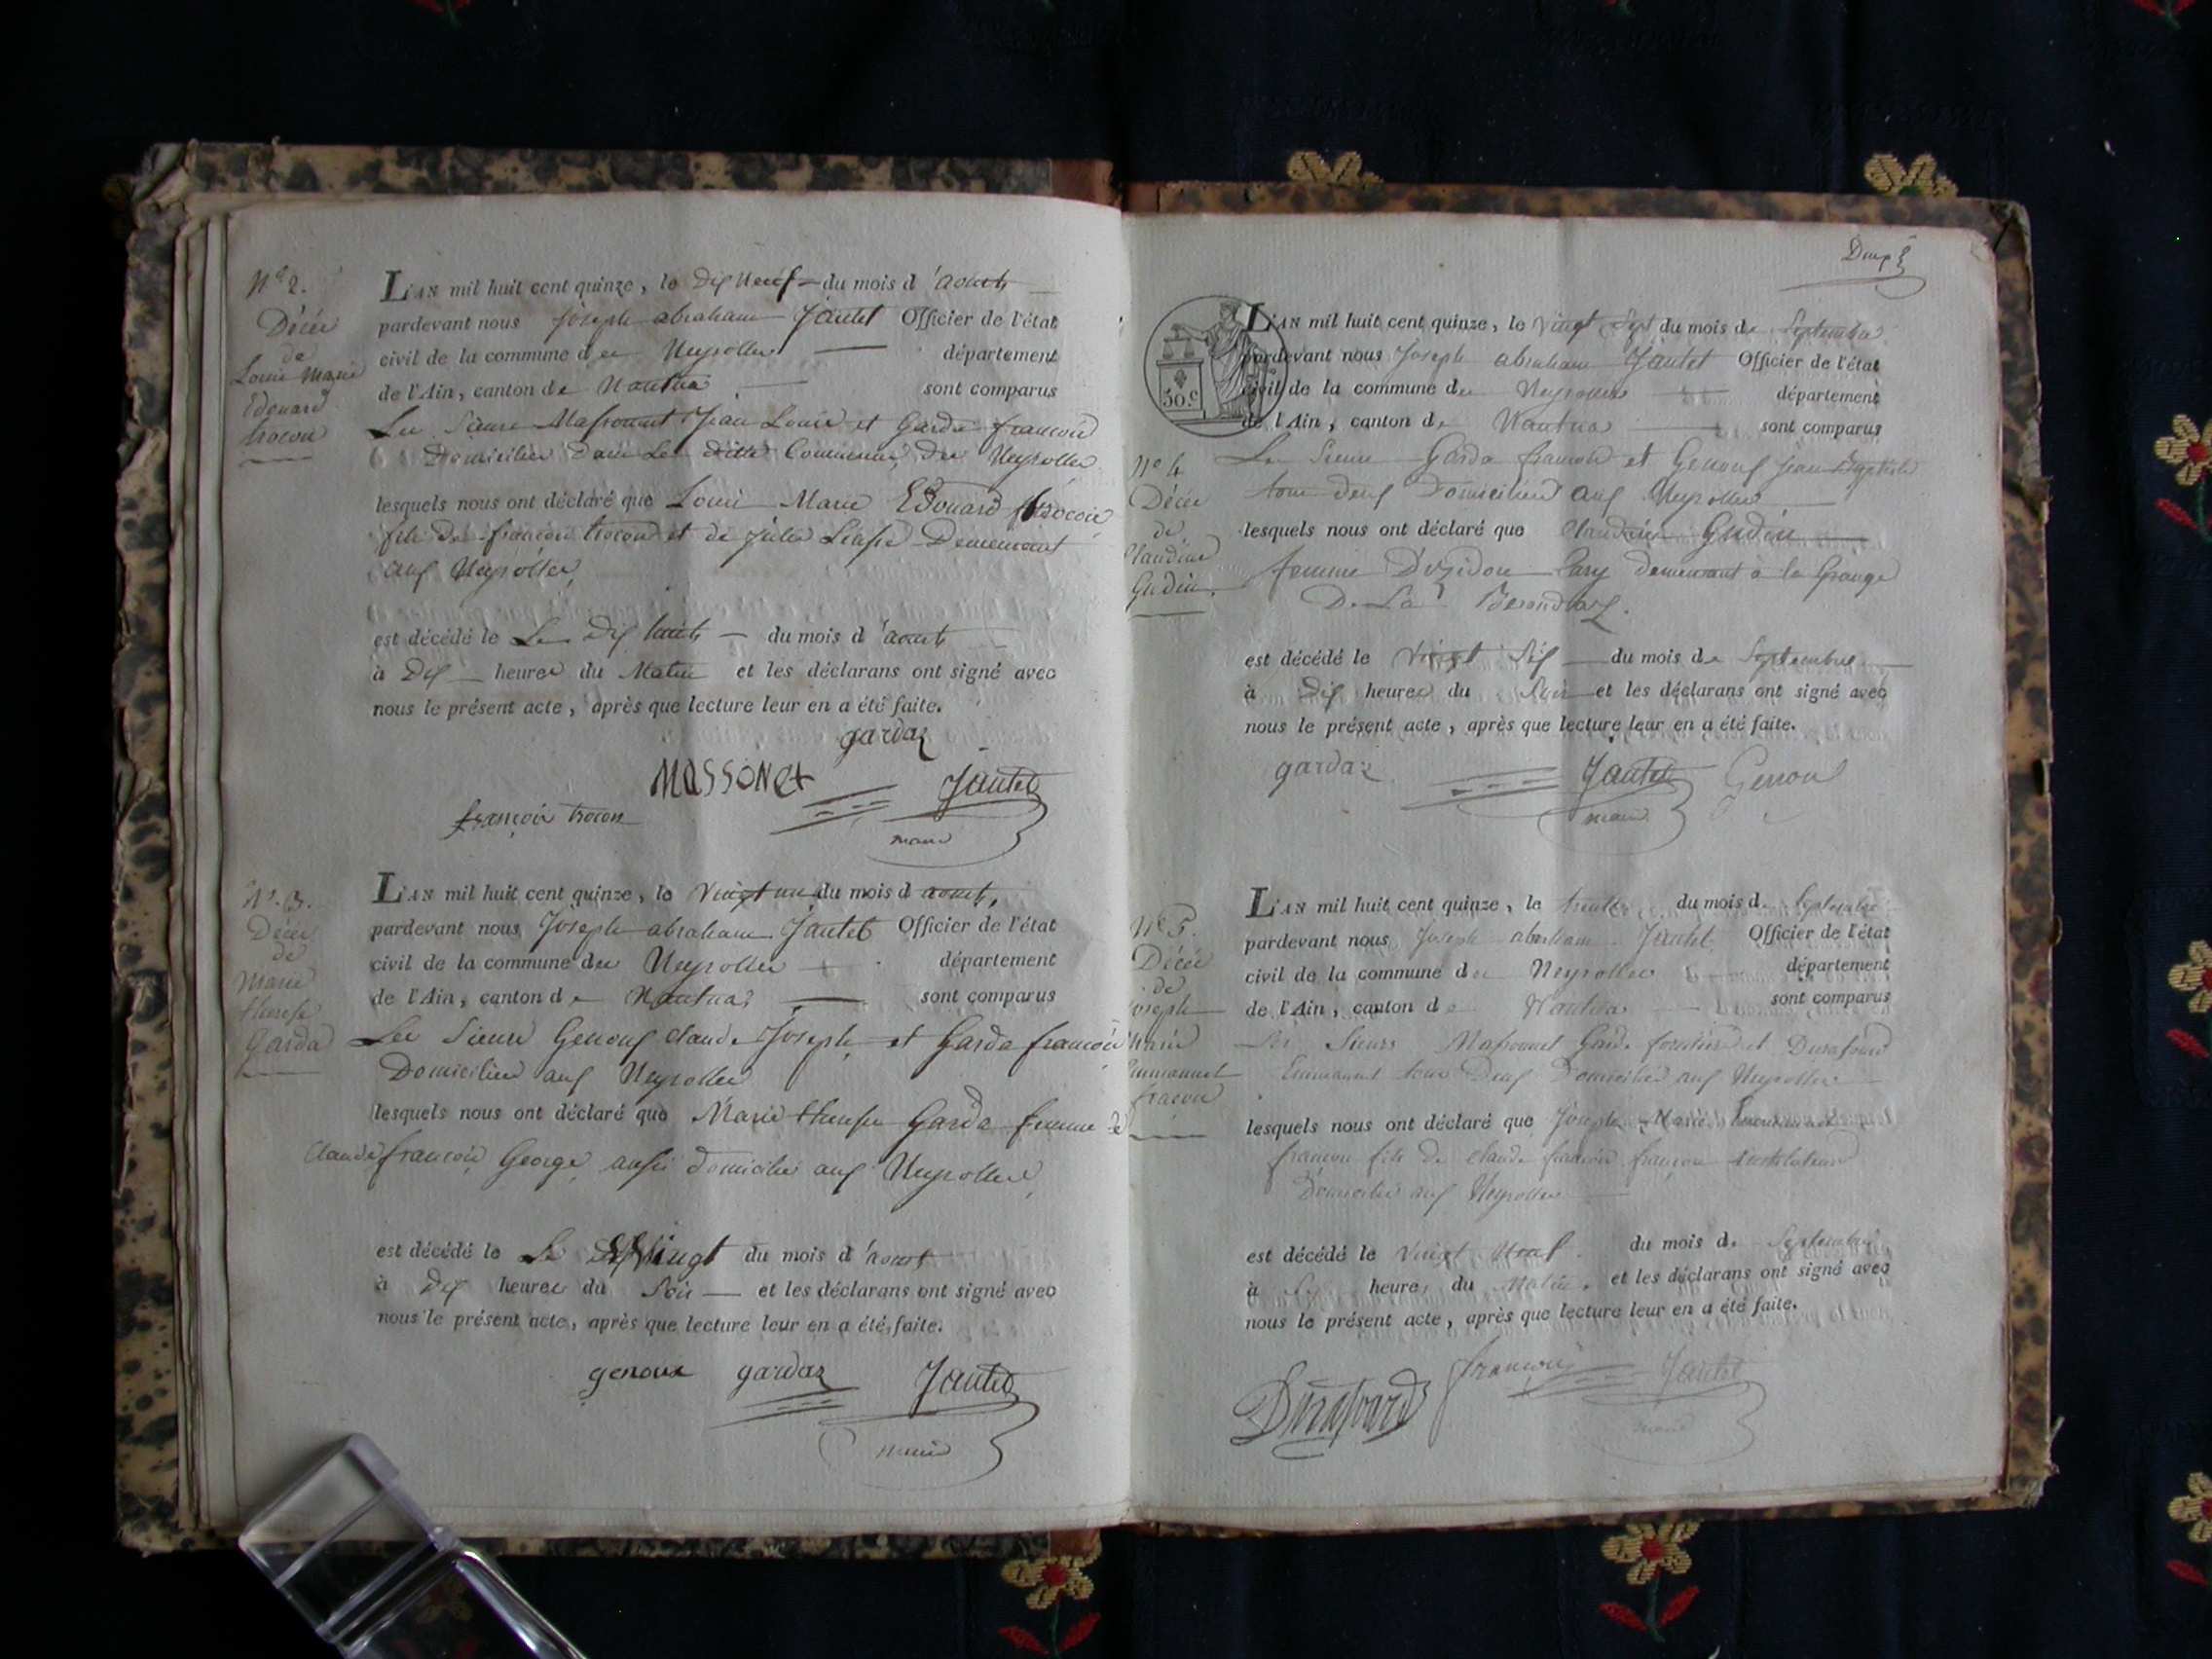 Nº 2.
Décès
de
Louis Marie
Edouard
trocon
L'AN mil huit cent quinze, le Dix Neuf du mois d'aoust
pardevant nous Joseph abraham Jantet Officier de l'état
civil de la commune des Neyrolles département
de l'Ain, canton de Nantua sont comparus
Les Sieurs Massonnet Jean Louis et Garda françois
Domiciliés dans la ditte Commune des Neyrolles
lesquels nous ont déclaré que Louis Marie Edouard trocon
fils de françois trocon et de Julie Demeurant
aux Neyrolles
est décédé le Le Dix huit du mois d'aoust
à Dix heures du Matin et les déclarans ont signé avec
nous le présent acte, après que lecture leur en a été faite.
gardaz
MASSONet Jantet
françois trocon
maire
Nº 3.
Décès
de
Marie
therese
Garda
L'AN mil huit cent quinze, le Vingt un du mois d aoust,
pardevant nous Joseph abraham Jantet Officier de l'état
civil de la commune des Neyrolles département
de l'Ain, canton de Nantua sont comparus
Les Sieurs Genoux claude Joseph et Garda françois
Domiciliés aux Neyrolles
lesquels nous ont déclaré que Marie therese Garda femme de
Claude françois George aussi domicilié aux Neyrolles
est décédé le Le Vingt du mois d'aoust
à Dix heures du Soir et les déclarans ont signé avec
nous le présent acte, après que lecture leur en a été faite.
genoux gardaz Jantet
maire
30 c
Nº 4
Décès
de
Claudine
Gudin.
L'AN mil huit cent quinze, le Vingt Sept du mois de Septembre
pardevant nous Joseph abraham Jantet Officier de l'état
civil de la commune des Neyrolles département
de l'Ain, canton de Nantua sont comparus
Les Sieurs Garda françois et Genoux Jean Baptiste
tous deux Domiciliés aux Neyrolles
lesquels nous ont déclaré que Claudine Gudin
femme D'isidore demeurant à la Grange
De La
est décédé le Vingt Six du mois de Septembre
à Dix heures du Soir et les déclarans ont signé avec
nous le présent acte, après que lecture leur en a été faite.
gardaz Jantet Genoux
maire
Nº 5.
Décès
de
joseph
Marie
Emmanuel
françois
L'AN mil huit cent quinze, le trente du mois de Septembre
pardevant nous Joseph abraham Jantet Officier de l'état
civil de la commune des Neyrolles département
de l'Ain, canton de Nantua sont comparus
Les Sieurs Massonnet Garde forestier et Durafourd
Emmanuel tous Deux Domiciliés aux Neyrolles
lesquels nous ont déclaré que Joseph Marie Emmanuel
françois fils de Claude françois françois instituteur
Domicilié aux Neyrolles
est décédé le Vingt Neuf du mois de Septembre
à heures du Matin et les déclarans ont signé avec
nous le présent acte, après que lecture leur en a été faite.
Durafourd françois Jantet
maire